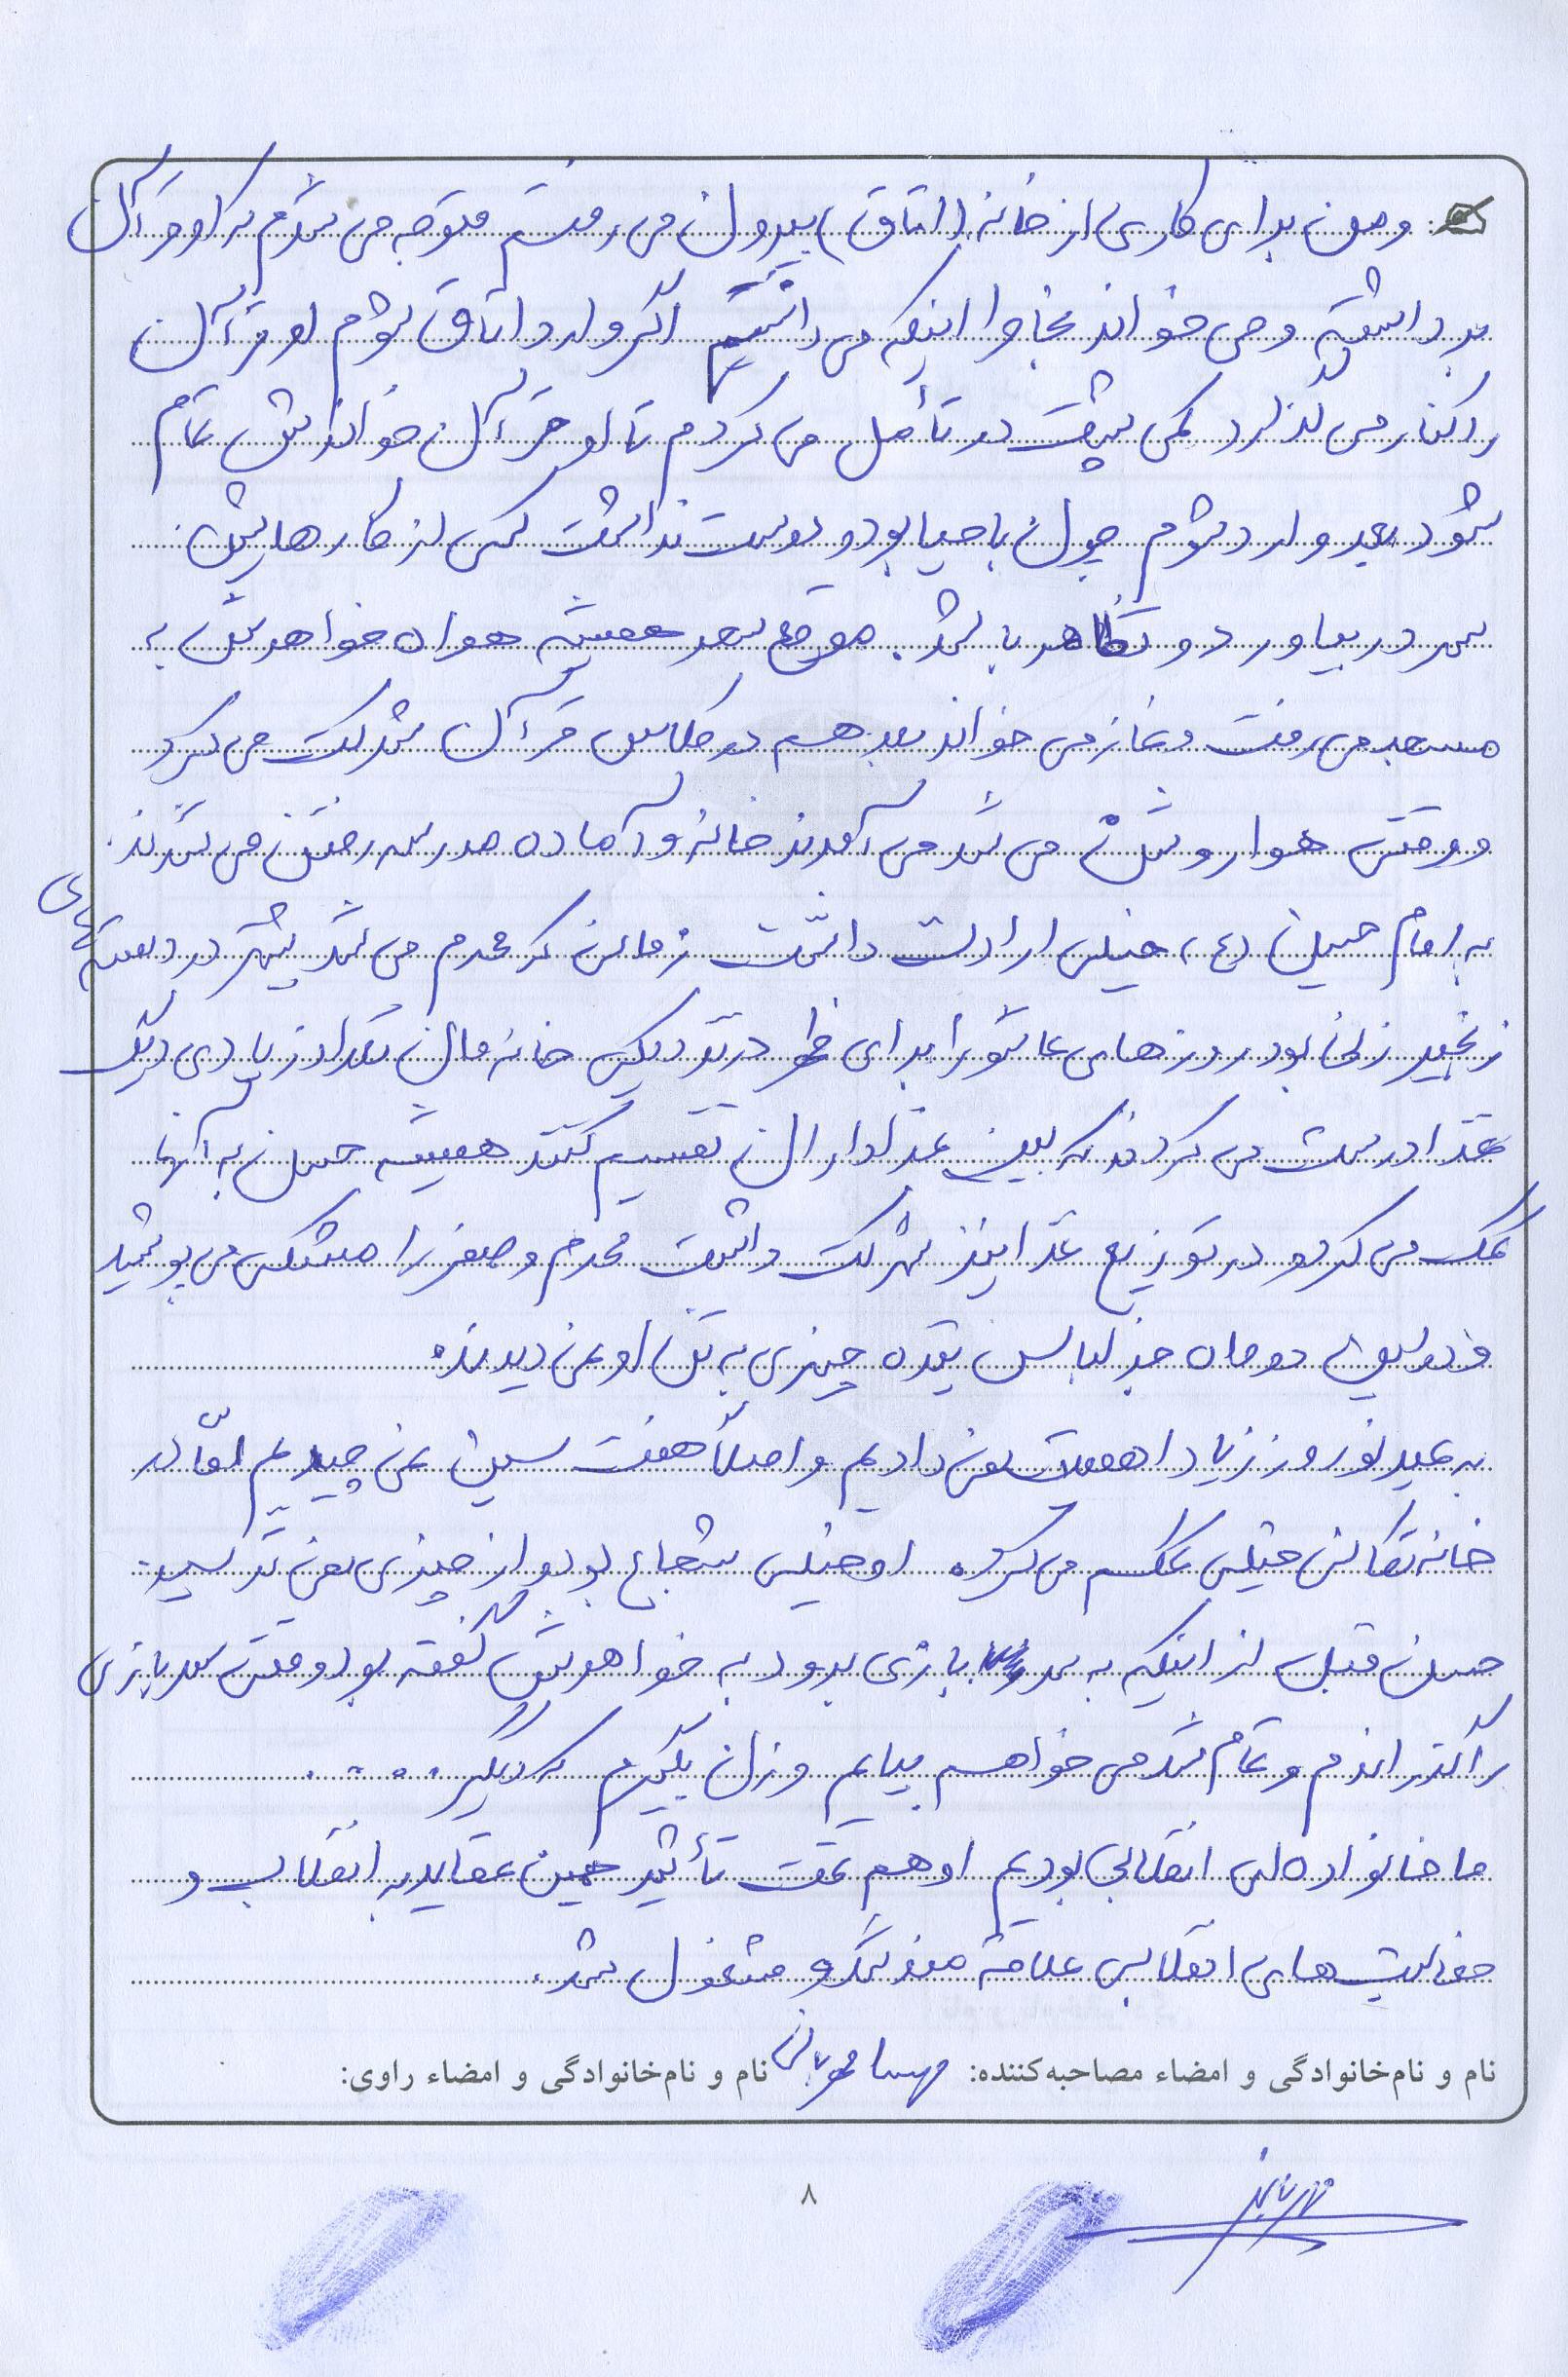 و من برای کاری از خانه (اتاق) بیرون می رفتم متوجه می شدم که او قرآن
برداشته و می خواند بخاطر اینکه می دانستم اگر وارد اتاق بشوم او قرآن
را کنار می گذارد کمی پشت در تأمل می کردم تا او قرآن خواندنش تمام
شود بعد وارد بشوم چون با حیا بود و دوست نداشت کسی از کارهایش
سر در بیاورد و تظاهر باشد. موقع سحر همیشه همراه خواهرش به
مسجد می رفت و نماز می خواند بعد هم در کلاس قرآن شرکت می کرد
و وقتی هوا روشن می شد می آمدند خانه و آماده مدرسه رفتن می شدند.
به امام حسین (ع) خیلی ارادت داشت زمانی که محرم می شد بیشتر در دسته های
زنجیر زنی بود روزهای عاشورا برای ظهر در نزدیکی خانه مان تعداد زیادی دیگ
غذا درست می کردند که بین عزاداران تقسیم کنند همیشه حسن به آنها
کمک می کرد و در توزیع غذا نیز شرکت داشت محرم و صفر را مشکی می پوشید
و در این دو ماه جز لباس تیره چیزی به تن او نمی دیدند.
به عید نوروز زیاد اهمیت نمی دادیم و اصلاً هفت سین نمی چیدیم امّا در
خانه تکانی خیلی کمکم می کرد. او خیلی شجاع بود و از چیزی نمی ترسید
حسن قبل از اینکه به سربازی برود به خواهرش گفته بود وقتی سربازی
را گذراندم و تمام شد می خواهم بیایم و زن بگیرم که دیگر ....
ما خانواده ای انقلابی بودیم او هم تحت تأثیر همین عقاید به انقلاب و
فعالیت های انقلابی علاقه مند شد و مشغول شد.
نام و نام‌خانوادگی و امضاء مصاحبه‌کننده: مهسا مهربانی نام و نام‌خانوادگی و امضاء راوی:
۸